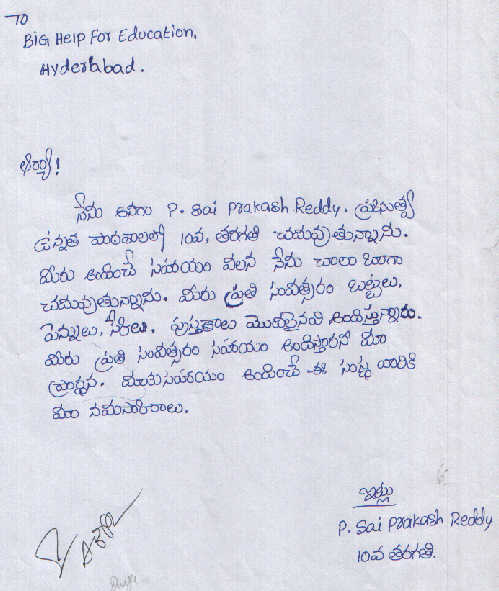 To
Big Help For Education,
Hyderabad.
అయ్యా!
నేను అనగా P. Sai Prakash Reddy. ప్రభుత్వ
ఉన్నత పాఠశాలలో 10వ, తరగతి చదువుతున్నాను.
మీరు అందించే సహాయం వలన నేను చాలా బాగా
చదువుతున్నాను. మీరు ప్రతి సంవత్సరం బట్టలు,
పెన్నులు, పుస్తకాలు మొదలైనవి అందిస్తున్నారు.
మీరు ప్రతి సంవత్సరం సహాయం అందిస్తారని మా
ప్రార్థన. మాకు సహాయం అందించే ఈ సంస్థ వారికి
మా నమస్కారాలు.
ఇట్లు
P. Sai Prakash Reddy
10వ తరగతి.